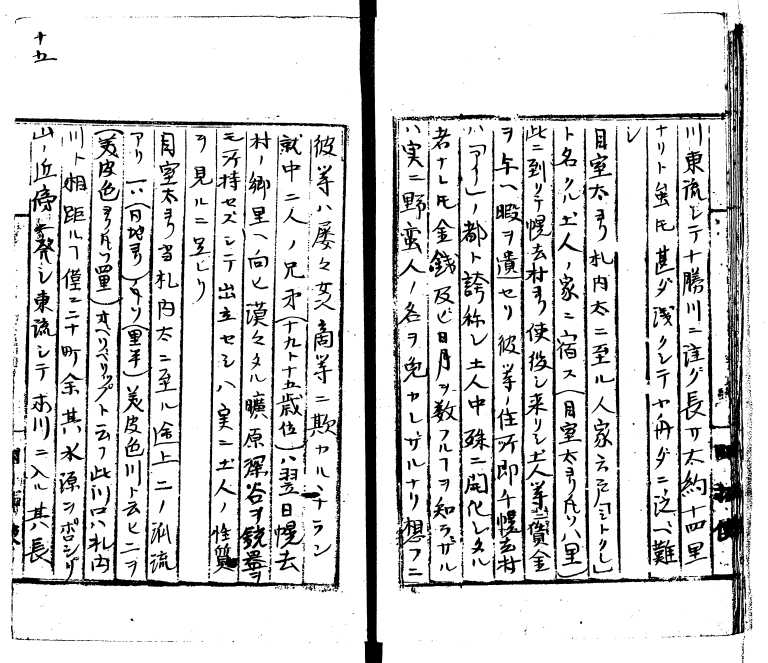 川東流シテ十勝川ニ注グ長サ太約十四里
ナリト虽モ甚ダ浅クシテ舟ダニ泛ベ難
シ
目室太ヨリ札内太ニ至ル人家六戸「シトクレ」
ト名クル土人ノ家ニ宿ス(目室太ヨリ凡ソ八里)
此ニ到リテ幌去村ヨリ使役シ来リシ土人等ニ賃金
ヲ与ヘ暇ヲ遣セリ彼等ノ住所即チ幌去村
ハ「アイノ」ノ都ト誇称シ土人中殊ニ開化シタル
者ナレ圧金錢及ビ日月ヲ数フルヿヲ知ラザル
ハ実ニ野蛮人ノ名ヲ免カレザルナリ想フニ
十五
彼等ハ屡々奸商等ニ欺カルヽナラン
就中二人ノ兄弟(十九ト十五歳位)ハ翌日幌去
村ノ郷里ヘ向ヒ漠々タル曠原深谷ヲ鋭器ヲ
モ所持セズシテ出立セシハ実ニ土人ノ性質
ヲ見ルニ足レリ
目室太ヨリ当札内太ニ至ル途上二ノ派流
アリ一ハ(目室ヨリ)(里半)美皮色川ト云ヒ二ヲ
(美皮色ヨリ凡ソ四里)オベリベリップト云フ此川口ハ札内
川ト相距ルヿ僅ニ二十町余其水源ハポロシリ
山ノ近傍ニ発シ東流シテ本川ニ入ル其長